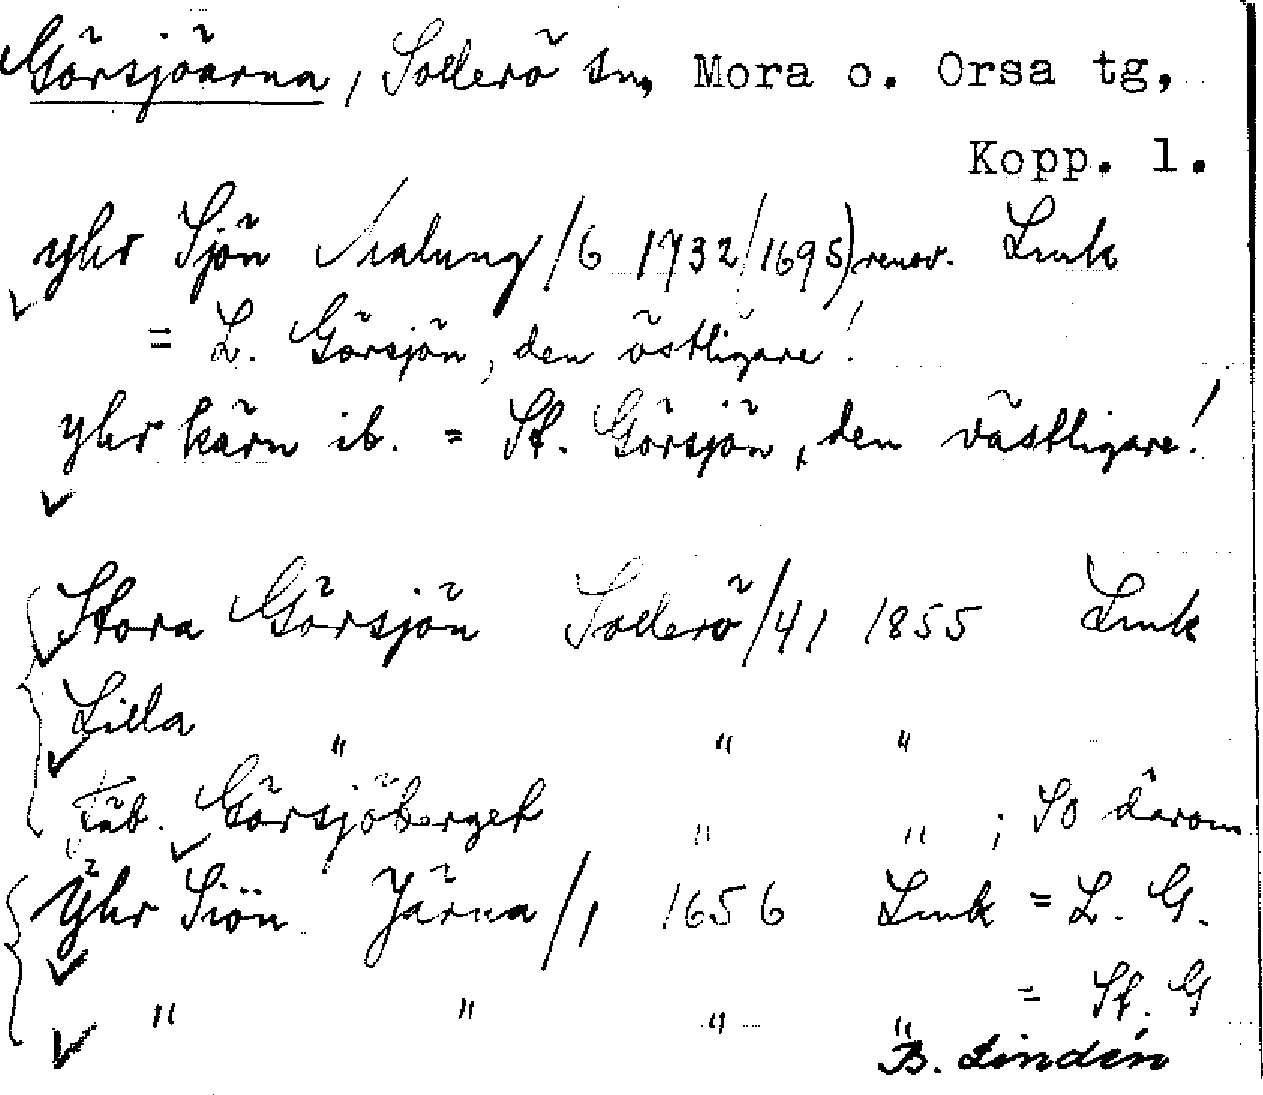 Görsjöarna, Sollerö sn, Mora o. Orsa tg,
Kopp. l.
yhr Sjön Malung/6 1732/1695) renov. Lmk
= L. Görsjön, den östligare!
yhr kärn ib. = St. Görsjön, den västligare!
Stora Görsjön Sollerö/41 1855 Lmk
Lilla " " "
fäb. Görsjöberget " " ; SO därom
Yhr Siön Järna/1 1656 Lmk = L. G.
" " " " = St. G
B. Lindén